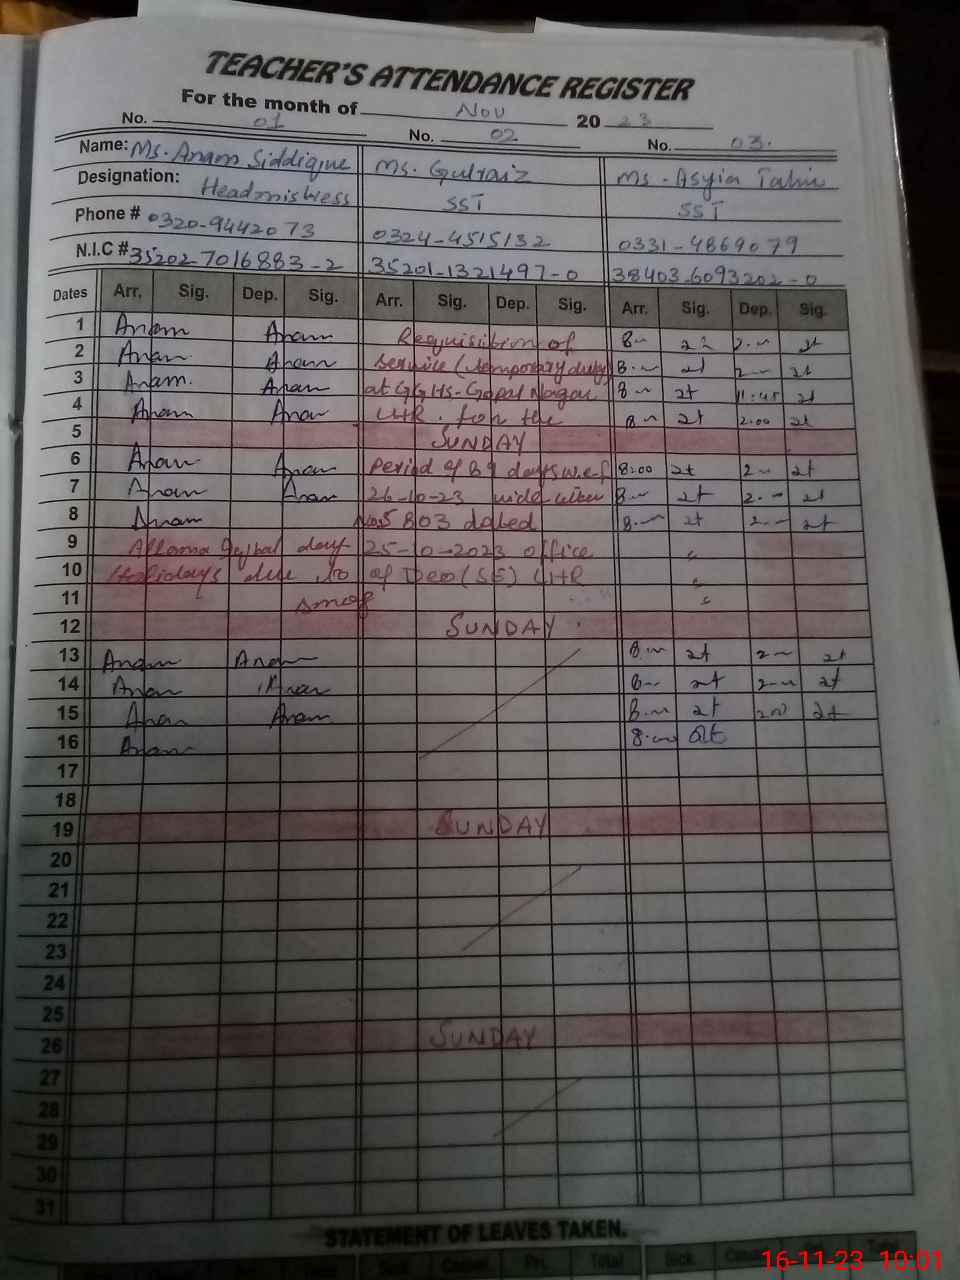 TEACHER'S ATTENDANCE REGISTER
For the month of Nov 20 23
No. 01 No. 02 No. 03.
Name: Ms. Anam Siddique Ms. Gulraiz Ms. Asyia Tahir
Designation: Headmistress SST SST
Phone # 0320-9442073 0324-4515132 0331-4869079
N.I.C # 35202-7016883-2 35201-1321497-0 38403-6093202-0
Dates Arr. Sig. Dep. Sig. Arr. Sig. Dep. Sig. Arr. Sig. Dep. Sig.
1 Anam Anam Requisition of 8-
2 Anam Anam Service (temporary duty) 8-
3 Anam. Anam at GGHS-Gopal Nagar 8- 11:45
4 Anam Anam LHR. for the 8- 2.00
5 SUNDAY
6 Anam Anam Period of 89 days w.e.f 8:00 2-
7 Anam Anam 26-10-23 8- 2-
8 Anam No. 5803 dated 8- 2-
9 Allama Iqbal day 25-10-2023 office
10 Holidays due to of Deo (SE) LHR
11 smog
12 SUNDAY
13 Anam Anam 8- 2-
14 Anam Anam 8- 2-
15 Anam Anam 8-
16 Anam 8-
17
18
19 SUNDAY
20
21
22
23
24
25
26 SUNDAY
27
28
29
30
31
STATEMENT OF LEAVES TAKEN.
Total Sick
16-11-23 10:01